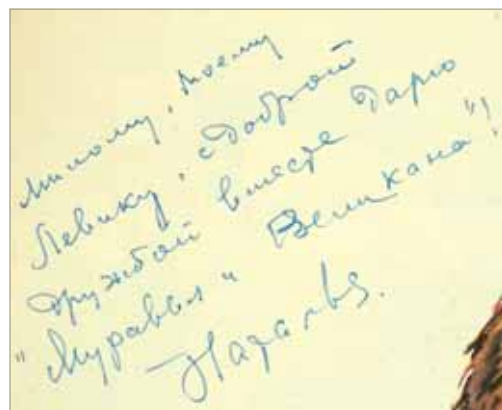 милому, моему
Левику, с доброй
дружбой вместе Дарю
"Муравья" Великана"!
Наталья.